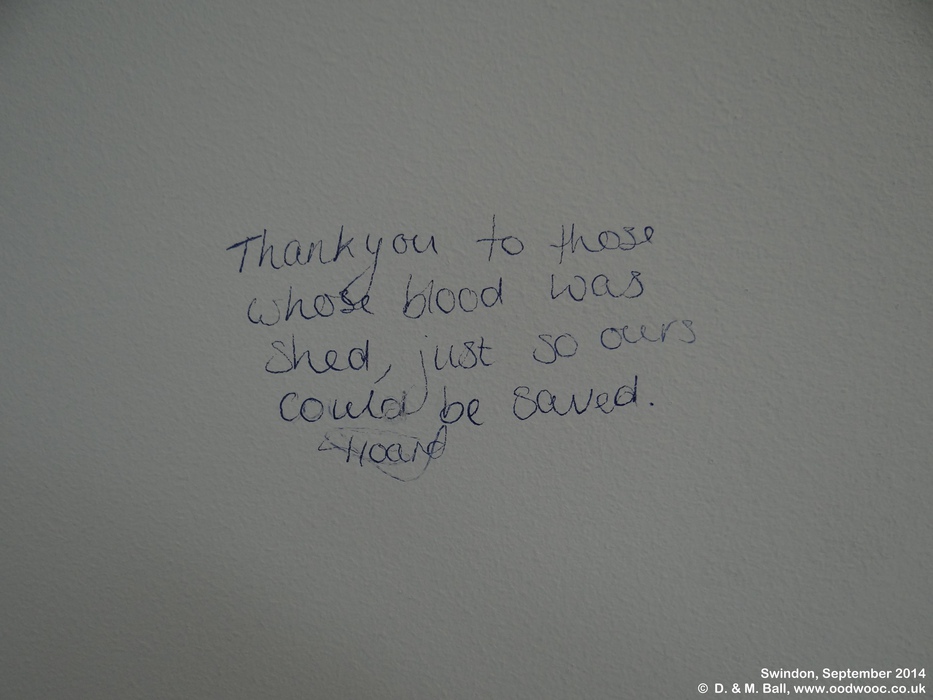 Thankyou to those
whose blood was
shed, just so ours
could be saved.
Swindon, September 2014
© D. & M. Ball, www.oodwooc.co.uk